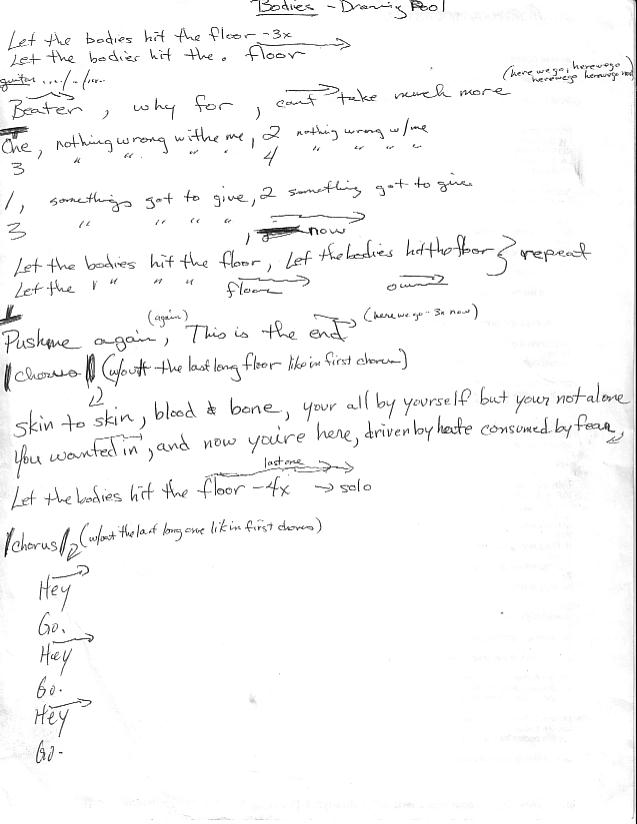 Bodies - Drowning Pool
Let the bodies hit the floor -3x
Let the bodies hit the . floor
guitar ..../../....
(here we go, herewego
herewego herewego now)
Beaten, why for, can't take much more
One, nothing wrong withe me, 2 nothing wrong w/me
3 " " " " 4 " " " "
1, somethings got to give, 2 something got to give
3 " " " " , now
Let the bodies hit the floor, Let the bodies hit the floor } repeat
Let the " " " floor oww
(again) (here we go - 3x now)
Push me again, This is the end
|chorus| (w/out the last long floor like in first chorus)
2
skin to skin, blood & bone, your all by yourself but your not alone
You wanted in, and now you're here, driven by hate consumed by fear,
last one
Let the bodies hit the floor -4x → solo
|chorus|2 (w/out the last long one like in first chorus)
Hey
Go.
Hey
Go.
Hey
Go.